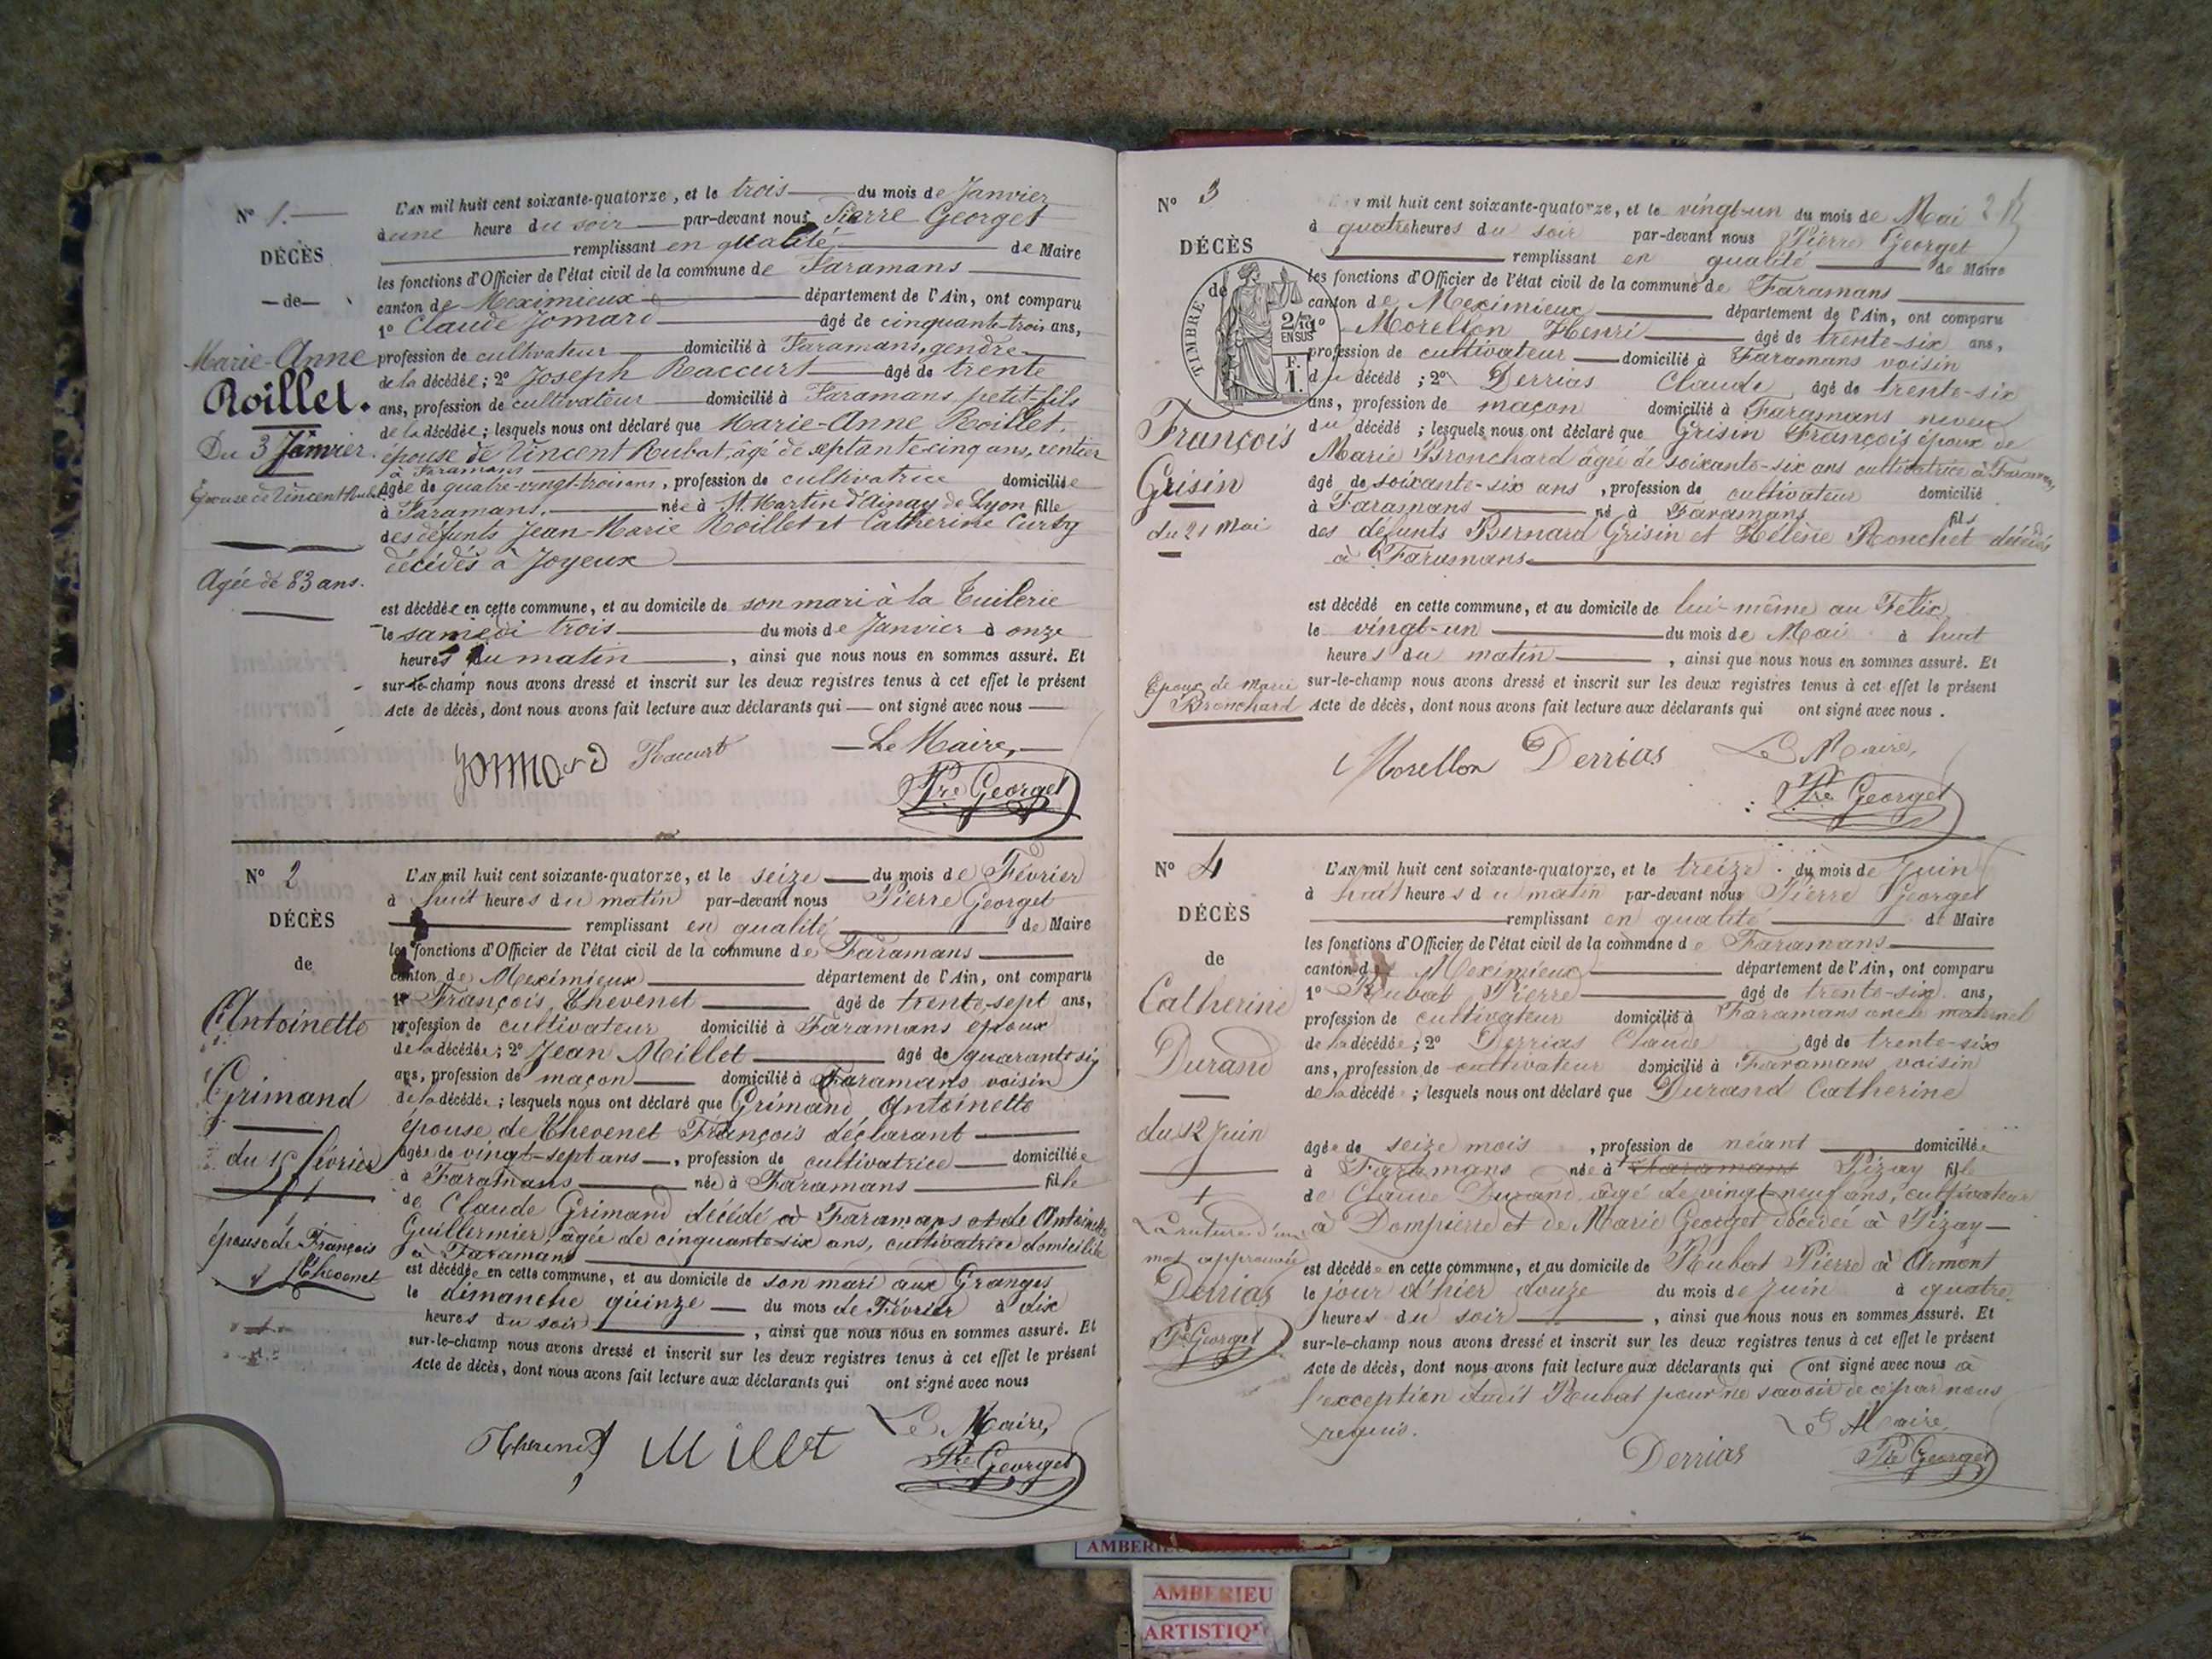 N° 1.
DÉCÈS
— de —
Marie-Anne
Roillet.
Du 3 Janvier.
Épouse de Vincent Rubat
Agée de 83 ans.
L'AN mil huit cent soixante-quatorze, et le trois du mois de Janvier
à une heure du soir par-devant nous Pierre Georget
remplissant en qualité de Maire
les fonctions d'Officier de l'état civil de la commune de Faramans
canton de Meximieux département de l'Ain, ont comparu
1° Claude Jomard âgé de cinquante-trois ans,
profession de cultivateur domicilié à Faramans, gendre
de la décédée; 2° Joseph Raccurt âgé de trente
ans, profession de cultivateur domicilié à Faramans, petit-fils
de la décédée; lesquels nous ont déclaré que Marie-Anne Roillet,
épouse de Vincent Rubat, âgé de septante-cinq ans, rentier
à Faramans
âgée de quatre-vingt-trois ans, profession de cultivatrice domiciliée
à Faramans, née à St. Martin d'Ainay de Lyon fille
des défunts Jean-Marie Roillet et Catherine Curby
décédés à Joyeux
est décédée en cette commune, et au domicile de son mari à la Tuilerie
le samedi trois du mois de Janvier à onze
heures du matin, ainsi que nous nous en sommes assuré. Et
sur-le-champ nous avons dressé et inscrit sur les deux registres tenus à cet effet le présent
Acte de décès, dont nous avons fait lecture aux déclarants qui — ont signé avec nous —
Jommard Raccurt — Le Maire, —
Pre Georget
N° 2
DÉCÈS
de
Antoinette
Grimand
du 15 février
épouse de François
Thevenet
L'AN mil huit cent soixante-quatorze, et le seize du mois de Février
à huit heures du matin par-devant nous Pierre Georget
remplissant en qualité de Maire
les fonctions d'Officier de l'état civil de la commune de Faramans
canton de Meximieux département de l'Ain, ont comparu
1° François Thevenet âgé de trente-sept ans,
profession de cultivateur domicilié à Faramans époux
de la décédée; 2° Jean Millet âgé de quarante six
ans, profession de maçon domicilié à Faramans voisin
de la décédée; lesquels nous ont déclaré que Grimand Antoinette
épouse de Thevenet François déclarant
âgée de vingt-sept ans, profession de cultivatrice domiciliée
à Faramans née à Faramans fille
de Claude Grimand décédé à Faramans et de Antoinette
Guillermier, âgée de cinquante-six ans, cultivatrice domiciliée
à Faramans
est décédée en cette commune, et au domicile de son mari aux Granges
le dimanche quinze du mois de Février à dix
heures du soir, ainsi que nous nous en sommes assuré. Et
sur-le-champ nous avons dressé et inscrit sur les deux registres tenus à cet effet le présent
Acte de décès, dont nous avons fait lecture aux déclarants qui ont signé avec nous
Thevenet Millet Le Maire,
Pre Georget
N° 3
DÉCÈS
de
TIMBRE
2/10
EN SUS
1 F.
François
Grisin
du 21 Mai
Époux de Marie
Bronchard
L'AN mil huit cent soixante-quatorze, et le vingt-un du mois de Mai 2
à quatre heures du soir par-devant nous Pierre Georget
remplissant en qualité de Maire
les fonctions d'Officier de l'état civil de la commune de Faramans
canton de Meximieux département de l'Ain, ont comparu
1° Morellon Henri âgé de trente-six ans,
profession de cultivateur domicilié à Faramans voisin
du décédé; 2° Derrias Claude âgé de trente-six
ans, profession de maçon domicilié à Faramans neveu
du décédé; lesquels nous ont déclaré que Grisin François époux de
Marie Bronchard âgée de soixante-six ans cultivatrice à Faramans,
âgé de soixante-six ans, profession de cultivateur domicilié
à Faramans né à Faramans fils
des défunts Bernard Grisin et Hélène Ronchet décédés
à Faramans
est décédé en cette commune, et au domicile de lui-même au Fétix
le vingt-un du mois de Mai à huit
heures du matin, ainsi que nous nous en sommes assuré. Et
sur-le-champ nous avons dressé et inscrit sur les deux registres tenus à cet effet le présent
Acte de décès, dont nous avons fait lecture aux déclarants qui ont signé avec nous.
Morellon Derrias Le Maire,
Pre Georget
N° 4
DÉCÈS
de
Catherine
Durand
du 12 Juin
La rature d'un
mot approuvée
Derrias
Pre Georget
L'AN mil huit cent soixante-quatorze, et le treize du mois de Juin
à huit heures du matin par-devant nous Pierre Georget
remplissant en qualité de Maire
les fonctions d'Officier de l'état civil de la commune de Faramans
canton de Meximieux département de l'Ain, ont comparu
1° Rubat Pierre âgé de trente-six ans,
profession de cultivateur domicilié à Faramans oncle maternel
de la décédée; 2° Derrias Claude âgé de trente-six
ans, profession de cultivateur domicilié à Faramans voisin
de la décédé; lesquels nous ont déclaré que Durand Catherine
âgée de seize mois, profession de néant domiciliée
à Faramans née à Faramans Pizay fille
de Claude Durand âgé de vingt-neuf ans, cultivateur
à Dompierre et de Marie Georget décédée à Pizay
est décédée en cette commune, et au domicile de Rubat Pierre à Armont
le jour d'hier douze du mois de Juin à quatre
heures du soir, ainsi que nous nous en sommes assuré. Et
sur-le-champ nous avons dressé et inscrit sur les deux registres tenus à cet effet le présent
Acte de décès, dont nous avons fait lecture aux déclarants qui ont signé avec nous à
l'exception dudit Rubat pour ne savoir de ce par nous
requis.
Derrias Le Maire
Pre Georget
AMBERIEU
AMBERIEU
ARTISTIQ